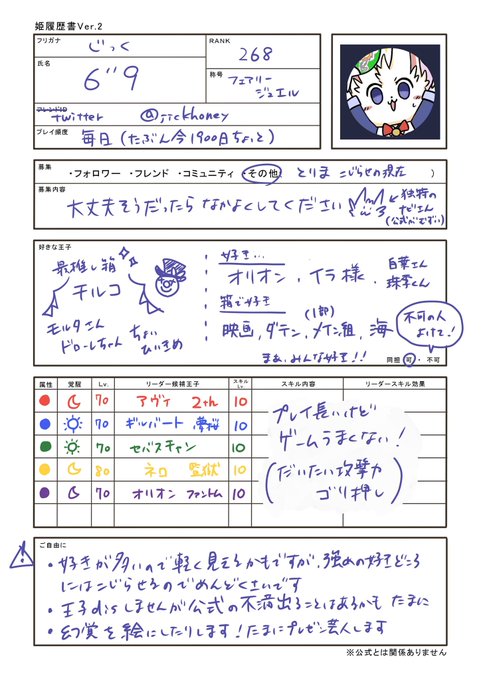 姫履歴書Ver.2
フリガナ
じっく
RANK
268
氏名
6"9
称号
フェアリー
ジュエル
フレンドID
twitter @jickhoney
プレイ頻度
毎日(たぶん今1900日ちょっと)
募集
・フォロワー ・フレンド ・コミュニティ ・その他( とりま こじらせの現在 )
募集内容
大丈夫そうだったら なかよくしてください
←独特の
ナビさん
(公式がむずい)
好きな王子
最推し箱
チルコ
モルタさん
ドローレちゃん
ちょい
ひいきめ
好き…
オリオン、イラ様、
白葉さん
珠翠くん
箱で好き
(1部)
映画、ダテン、メイン組、海
まぁ、みんな好き!!
不可の人
よけて!
同担 可・不可
属性 覚醒 Lv. リーダー候補王子 スキルLv. スキル内容 リーダースキル効果
70 アヴィ 2th 10
70 ギルバート 夢桜 10
70 セバスチャン 10
80 ネロ 監獄 10
70 オリオン ファントム 10
プレイ長いけど
ゲームうまくない!
(だいたい攻撃力
ゴリ押し)
ご自由に
・好きが多いので軽く見えるかもですが、強めの好きどころ
にはこじらせるのでめんどくさいです
・王子disしませんが公式の不満出ることはあるかも たまに
・幻覚を絵にしたりします!たまにプレゼン芸人します
※公式とは関係ありません